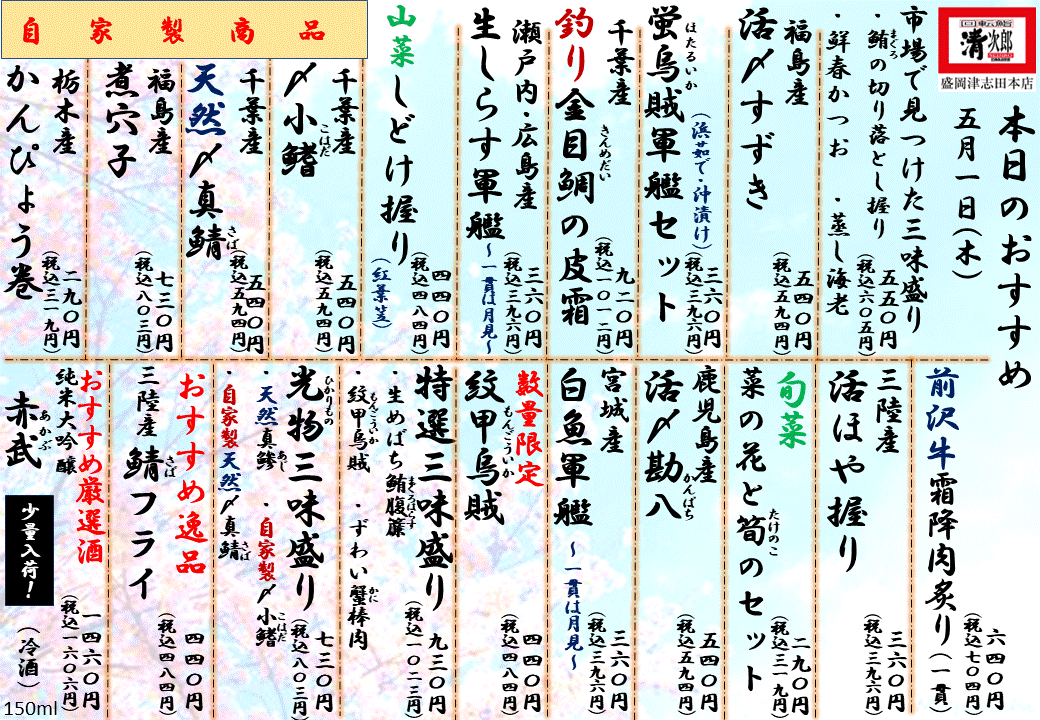 回転鮨
清次郎
盛岡津志田本店
本日のおすすめ
五月一日(木)
市場で見つけた三味盛り
・鮪の切り落とし握り
まぐろ
・鮮春かつお ・蒸し海老
五五〇円
(税込六〇五円)
福島産
活〆すずき
五四〇円
(税込五九四円)
ほたるいか
蛍烏賊軍艦セット
(浜茹で・沖漬け)
三六〇円
(税込三九六円)
千葉産
釣り金目鯛の皮霜
きんめだい
九二〇円
(税込一〇一二円)
瀬戸内・広島産
生しらす軍艦
~一貫は月見~
三六〇円
(税込三九六円)
山菜しどけ握り
(紅葉笠)
四四〇円
(税込四八四円)
自家製商品
千葉産
〆小鰭
こはだ
五四〇円
(税込五九四円)
千葉産
天然〆真鯖
さば
五四〇円
(税込五九四円)
福島産
煮穴子
七三〇円
(税込八〇三円)
栃木産
かんぴょう巻
二九〇円
(税込三一九円)
前沢牛霜降肉炙り(一貫)
六四〇円
(税込七〇四円)
三陸産
活ほや握り
三六〇円
(税込三九六円)
旬菜
菜の花と筍のセット
たけのこ
二九〇円
(税込三一九円)
鹿児島産
活〆勘八
かんぱち
五四〇円
(税込五九四円)
宮城産
白魚軍艦
~一貫は月見~
三六〇円
(税込三九六円)
数量限定
紋甲烏賊
もんごういか
四四〇円
(税込四八四円)
特選三味盛り
・生めばち鮪腹簾
まぐろはらす
・紋甲烏賊 ・ずわい蟹棒肉
もんごういか かに
九三〇円
(税込一〇二三円)
ひかりもの
光物三味盛り
・天然真鯵 ・自家製〆小鰭
あじ こはだ
・自家製天然〆真鯖
さば
七三〇円
(税込八〇三円)
おすすめ逸品
三陸産鯖フライ
さば
四四〇円
(税込四八四円)
おすすめ厳選酒
純米大吟醸
赤武
あかぶ
少量入荷!
(冷酒)
一四六〇円
(税込一六〇六円)
150ml